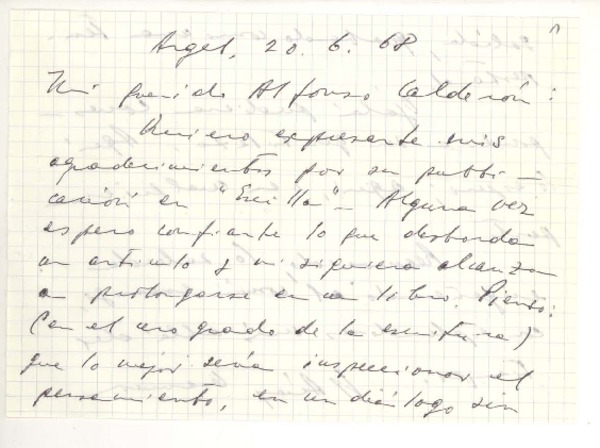 Argel, 20. 6. 68
Mi querido Alfonso Calderón:
Quiero expresarte mis
agradecimientos por su publi-
cación en "Ercilla" - Alguna vez
espero confiarte lo que desborda
un artículo y ni siquiera alcanza
a prolongarse en un libro. Pienso:
(en el cero grado de la escritura)
que lo mejor sería inspeccionar el
pensamiento, en un diálogo sin